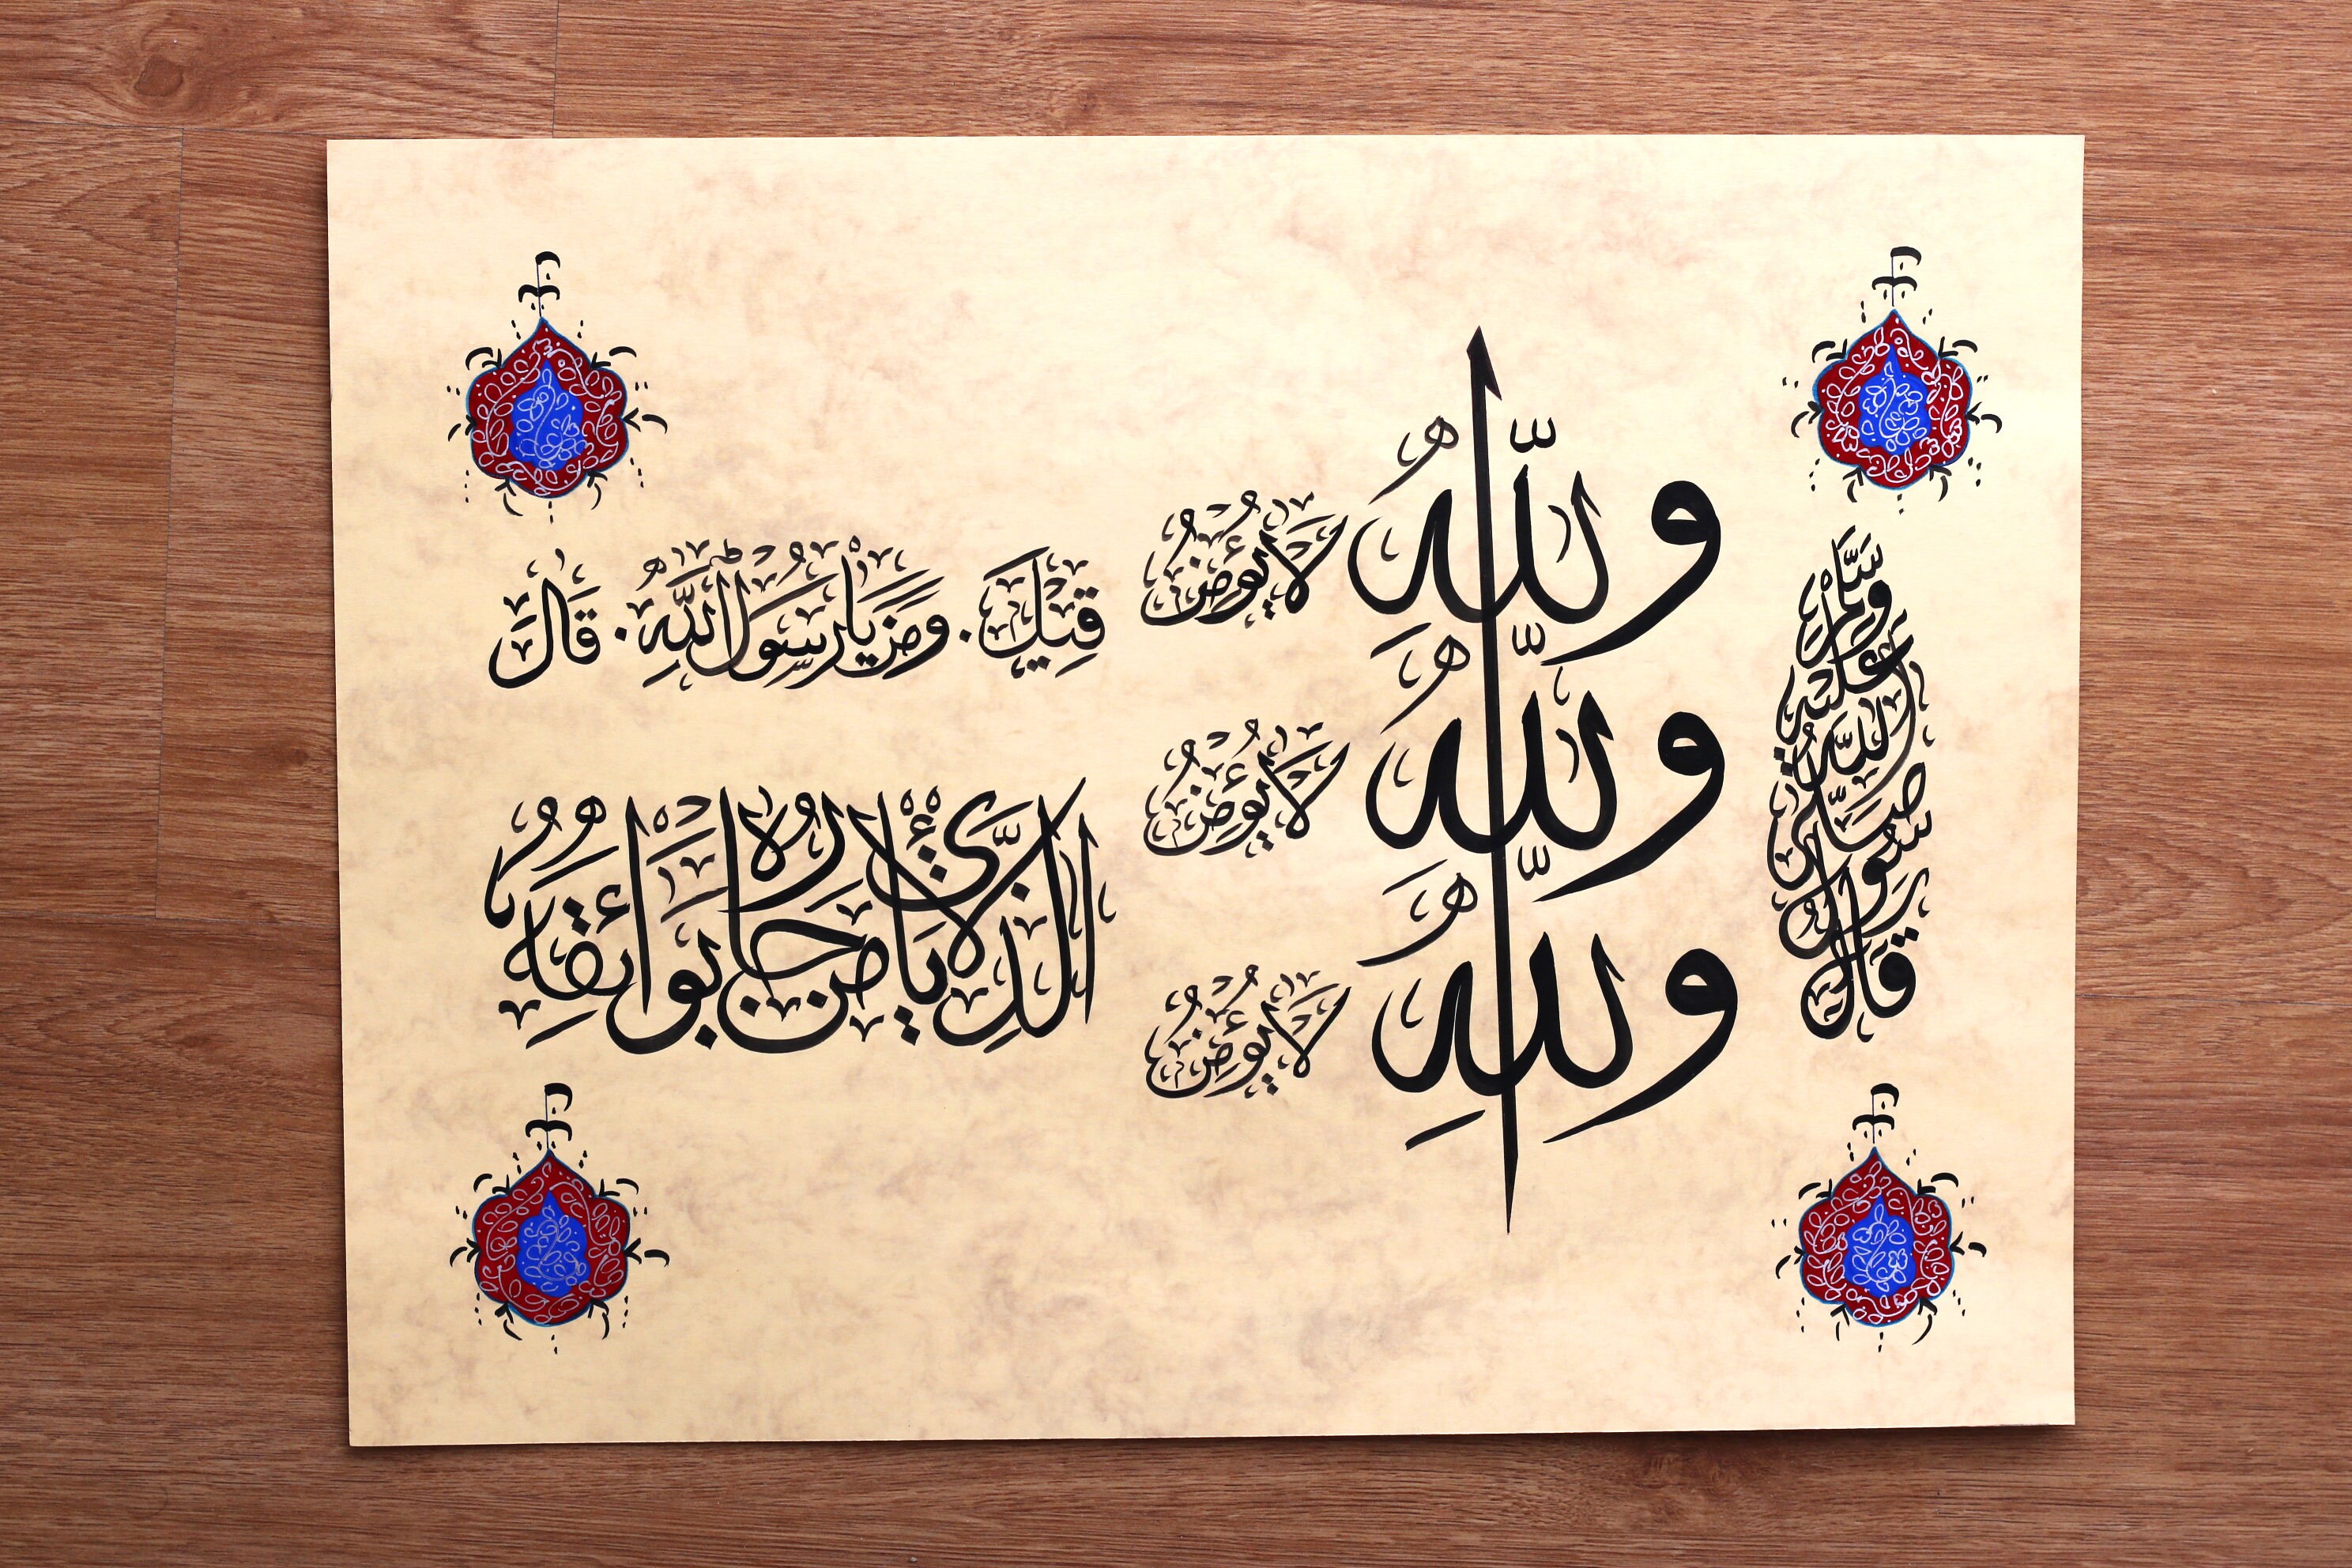 قَالَ رَسُولُ اللّٰهِ صَلَّى اللّٰهُ عَلَيْهِ وَسَلَّمَ
وَاللّٰهِ لَا يُؤْمِنُ
وَاللّٰهِ لَا يُؤْمِنُ
وَاللّٰهِ لَا يُؤْمِنُ
قِيْلَ. وَمَنْ يَا رَسُوْلَ اللّٰهِ. قَالَ
الَّذِيْ لَا يَأْمَنُ جَارُهُ بَوَائِقَهُ